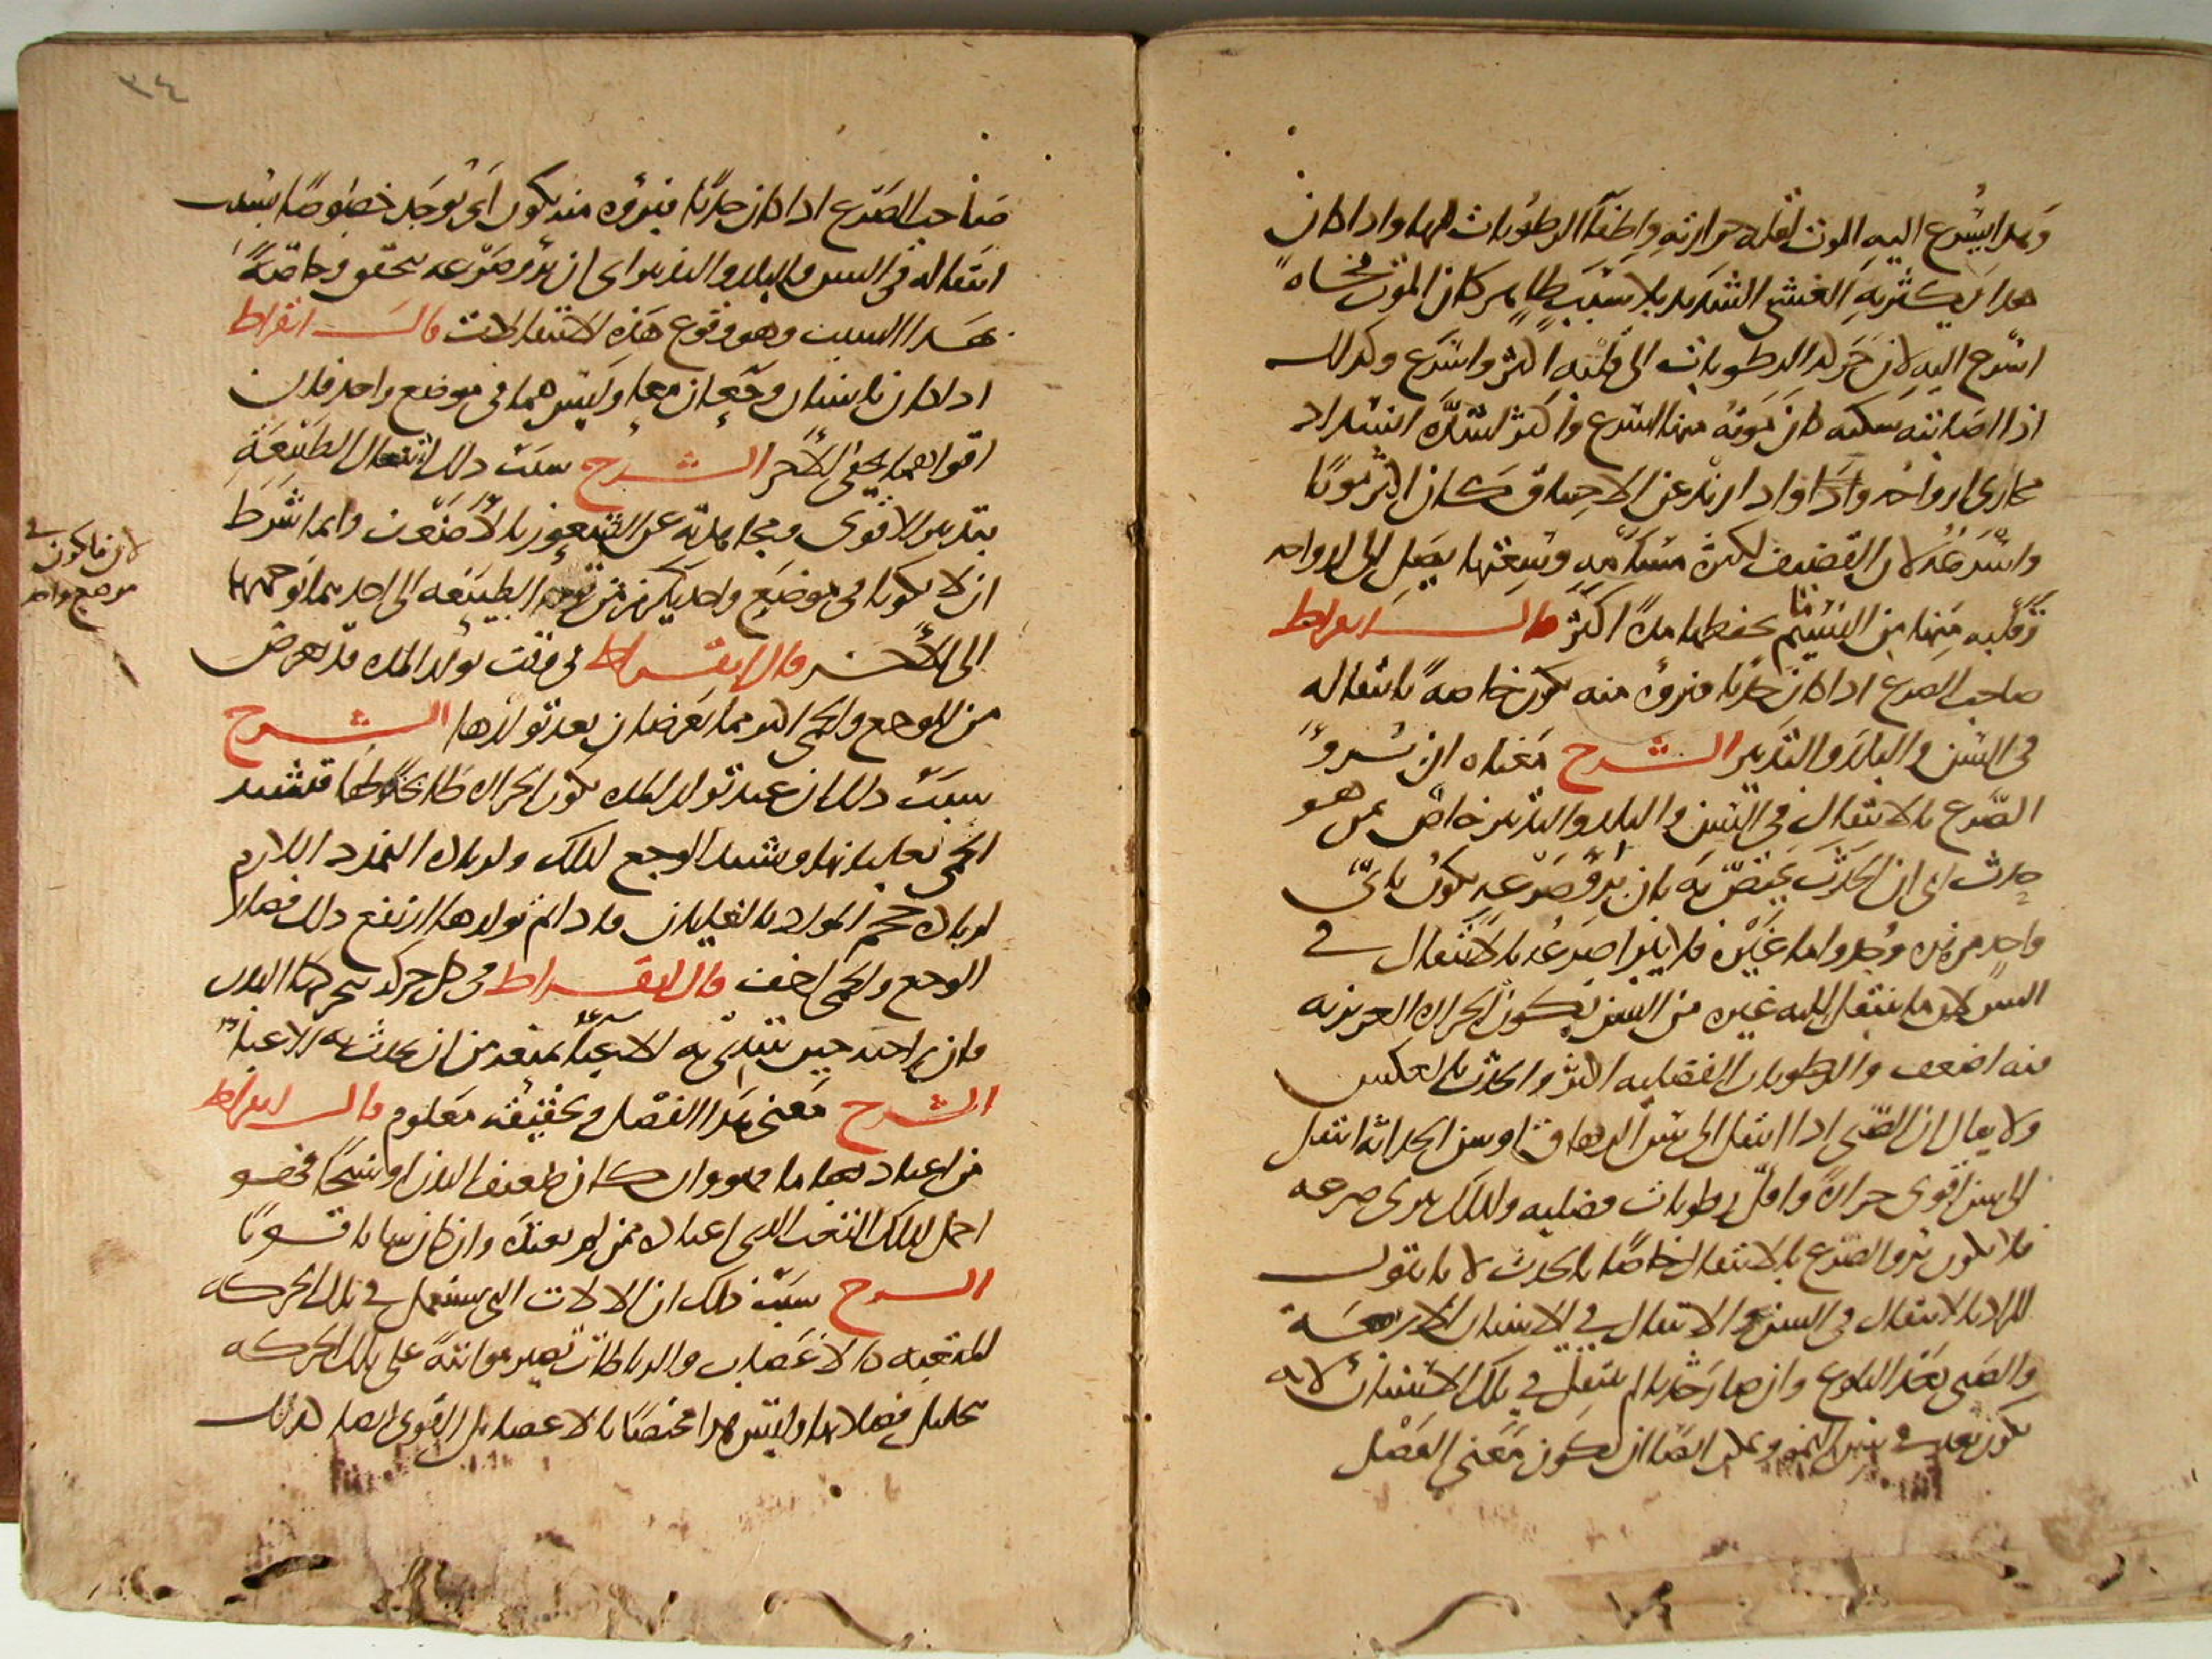 وهذا يسرع اليه الموت لقلة حرارته واطفآ الرطوبات لها واذا كان
هذا يكثر به الغشي الشديد بلا سبب ظاهر كان الموت فجاه
اسرع اليه لان الرطوبات الى قلبه اكثر واسرع وكذلك
اذا اصابته سكته كان موته منها اسرع واكثر لشدة انسداد
مجاري ارواحه واذا اديرت عن الاختناق كان اكثر موتا
واسرعه لان القضيف لكثرة مسامه وسعتها يصل الى الرواحه
وقلبه منها من النسيم ما يحفظها مدة اكثر قال ابقراط
صاحب الصرع اذا كان حدثا فبروه منه يكون خاصة بانتقاله
في السن والبلد والتدبير الشرح معناه ان بروء
الصرع بالانتقال في السن والبلد والتدبير خاص بمن هو
حدث اي ان الحدث يختص به بان برو صرعه يكون باي
واحد من هذه وجد واما غيره فلا يبرا صرعه بالانتقال في
السن لان ما ينتقل اليه غيره من السن يكون الحرارة الغريزيه
فيه اضعف والرطوبات الفضليه اكثر والحدث بالعكس
ولا يقال ان الصبي اذا انتقل الى سن الرهاق او سن الحداثة انتقل
الى سن اقوى حرارة واقل رطوبات فضليه ولذلك يبرى صرعه
فلا يكون برو الصرع بالانتقال خاصا بالحدث لانا نقول
المراد بالانتقال في السن هو الانتقال في الاسنان الاربعة
والصبي بعد البلوغ وان صار حدثا لم ينتقل في تلك الاسنان لانه
يكون بعد في سن النمو ويمكن ايضا ان يكون معنى الفصل
٣٤
صاحب الصرع اذا كان حدثا فبروه منه يكون اي يوجد خصوصا بسبب
انتقاله في السن والبلد والتدبير اي ان برو صرعه يتحقق وخاصة
بهذا السبب وهو وقوع هذه الانتقالات قال ابقراط
اذا كان بانسان وجعان معا وليس هما في موضع واحد فان
اقواهما يخفي الاخر الشرح سبب ذلك اشتغال الطبيعة
بتدبير الاقوى ومجاهدته عن الشعور بالاضعف وانما شرط
ان لا يكونا في موضع واحد يكون توجه الطبيعه الى احدهما توجها
لان ما يكون في
موضع واحد
الى الاخر قال ابقراط في وقت تولد المده قد يعرض
من الوجع والحمى اكثر مما يعرضان بعد تولدها الشرح
سبب ذلك ان عند تولد المده تكون الحرارة فتشتد
الحمى لغليانها ويشتد الوجع لذلك ولزيادة التمدد اللازم
لزيادة حجم المواد بالغليان فاذا تم تولدها ارتفع ذلك فصار
الوجع والحمى اخف قال ابقراط في كل حركة يتحركها البدن
فان يراحته حين يبتدي به الاعياء يمنعه من ان يحدث به الاعياء
الشرح معنى هذا الفصل وتحقيقه معلوم قال ابقراط
من اعتاد تعبا ما فهو وان كان ضعيف البدن او شيخا فهو
احمل لذلك التعب الذي اعتاده ممن لم يعتده وان كان شابا قويا
الشرح سبب ذلك ان الالات التي يستعمل في تلك الحركه
المتعبه كالاعصاب والرباطات تصير مواتية على تلك الحركه
بتحليل فضلاتها وليس هذا مختصا بالاعضا بل القوى ايضا كذلك